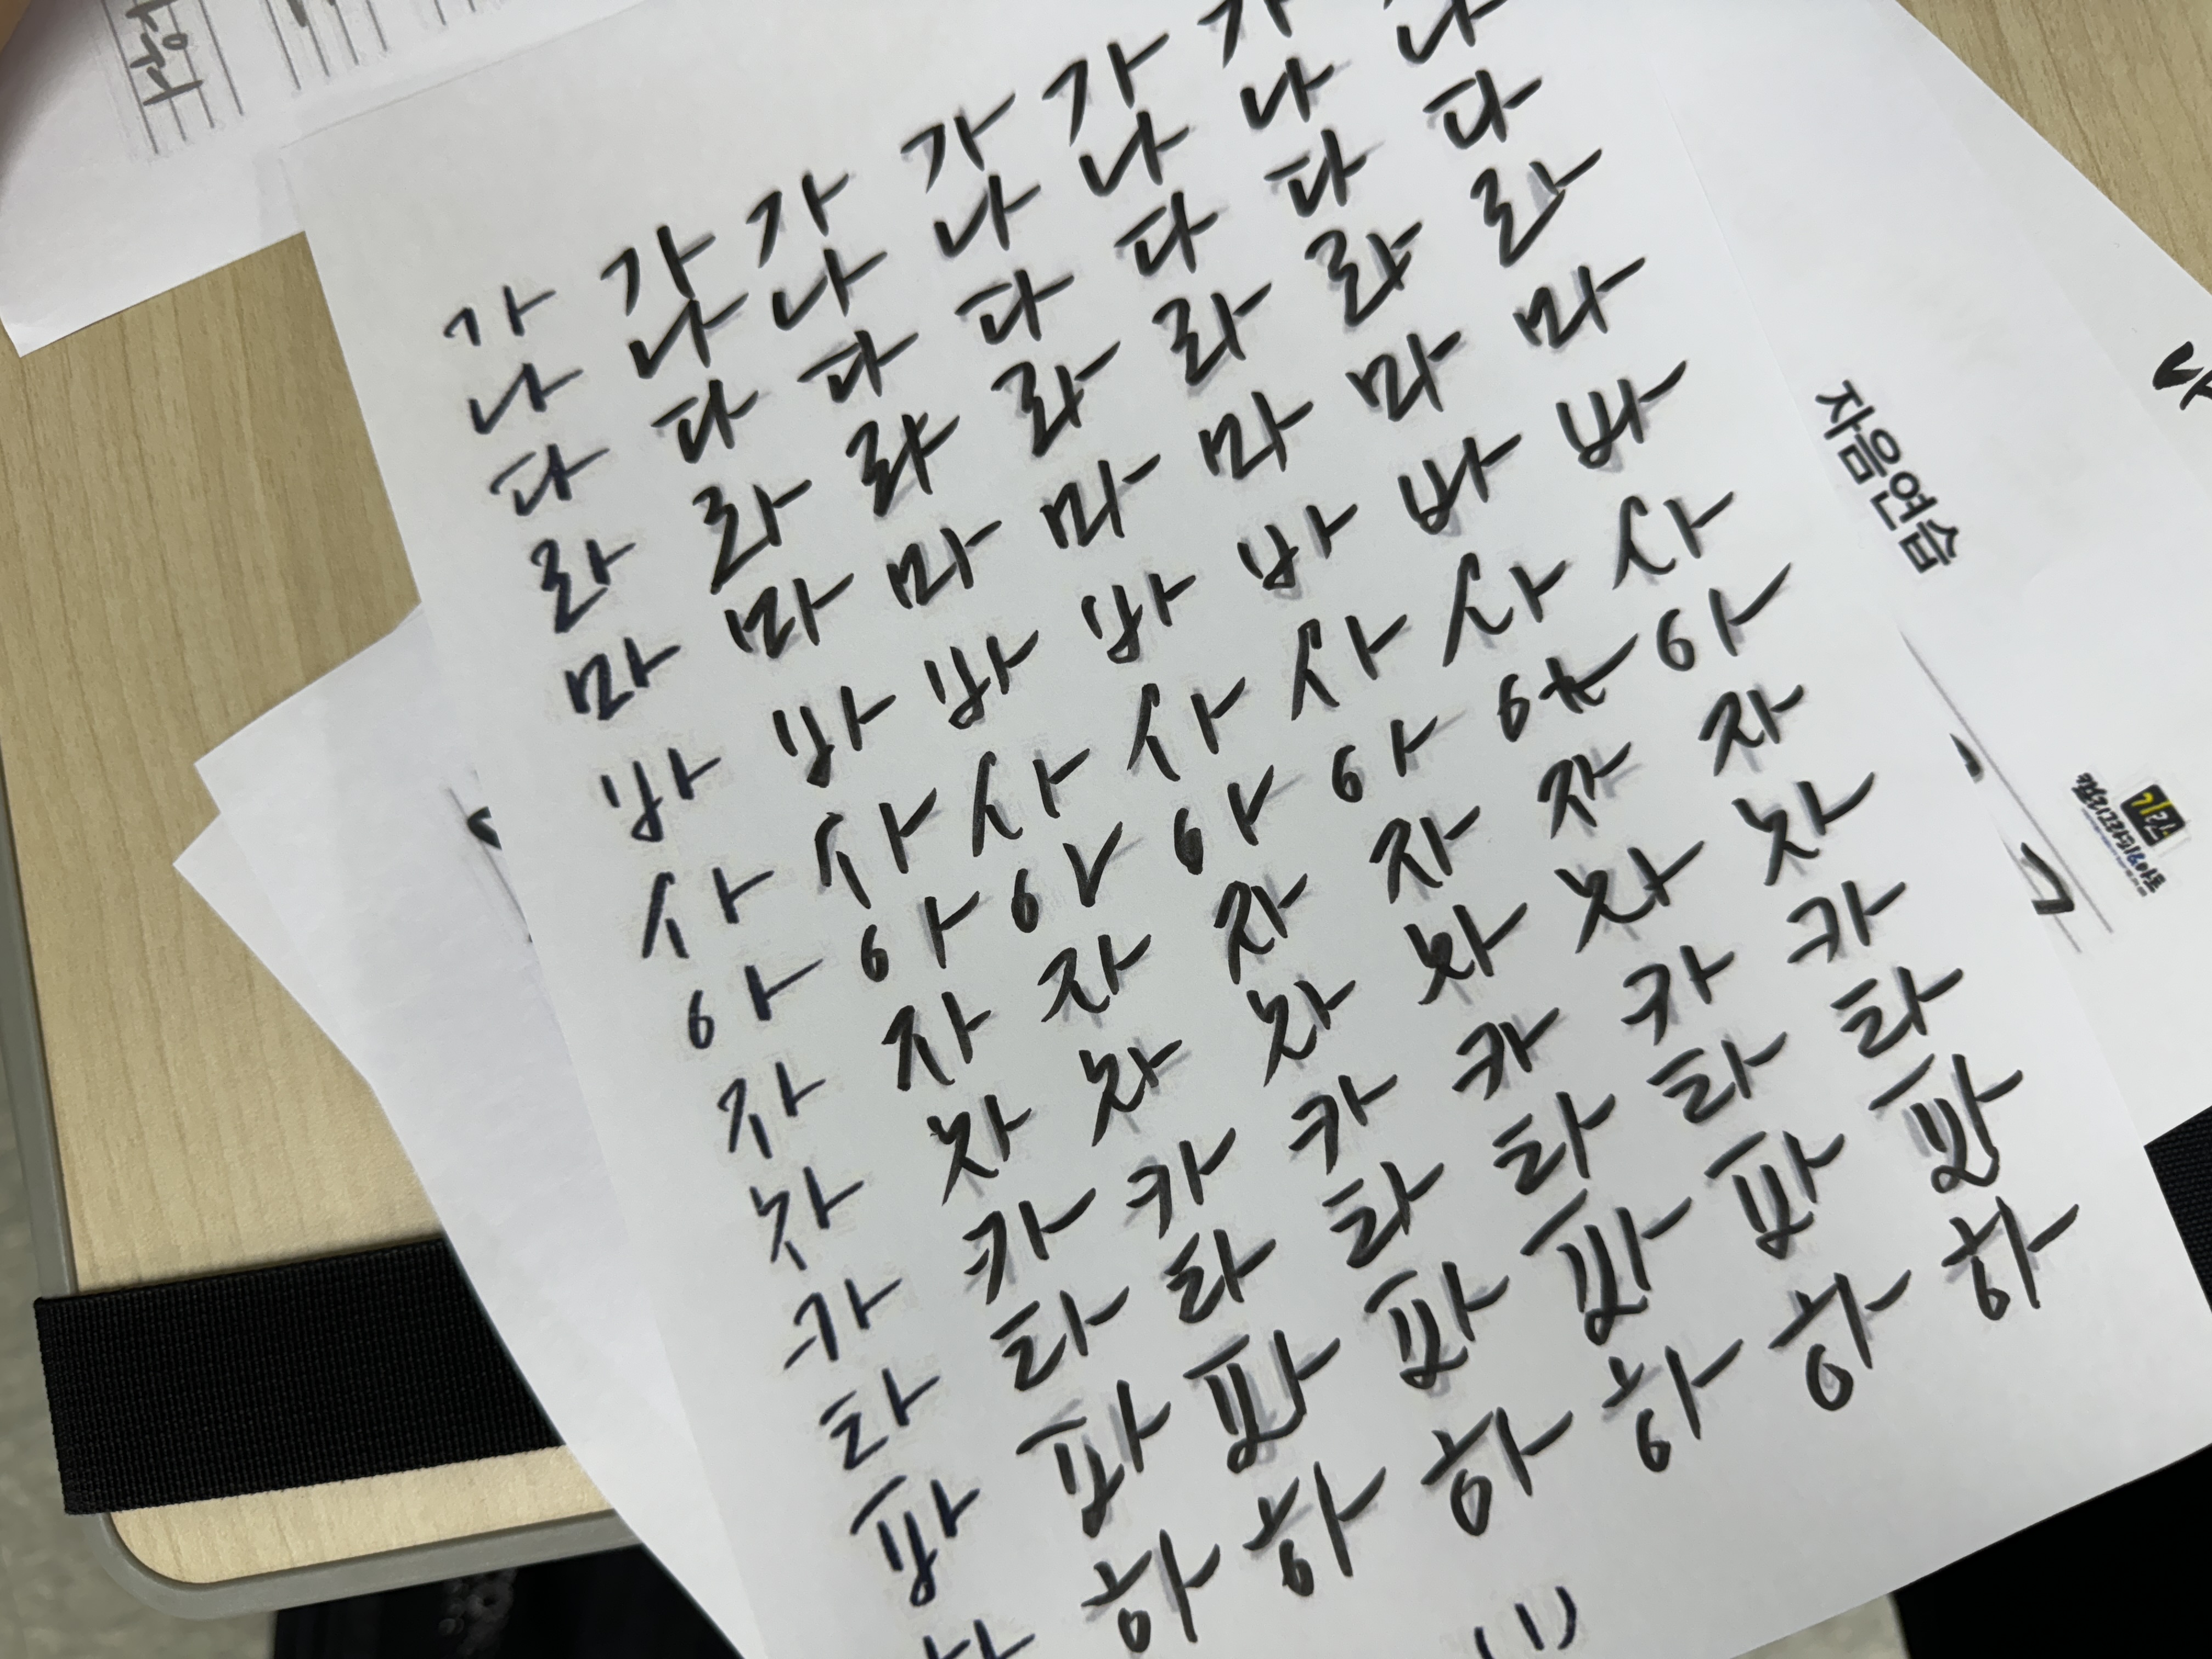 가 가 가 가 가 가
나 나 나 나 나 나 나
다 다 다 다 다 다 다
라 라 라 라 라 라 라
마 마 마 마 마 마 마
바 바 바 바 바 바 바
사 사 사 사 사 사 사
아 아 아 아 아 아 아
자 자 자 자 자 자 자
차 차 차 차 차 차 차
카 카 카 카 카 카 카
타 타 타 타 타 타 타
파 파 파 파 파 파 파
하 하 하 하 하 하
자음연습